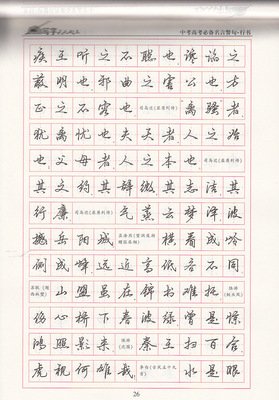 中考高考必备名言警句·行书
疾王听之不聪也谗谄之
蔽明也邪曲之害公也方
正之不容也 司马迁《屈原列传》 离骚者
犹离忧也夫天者人之始
也父母者人之本也 司马迁《屈原列传》
其文约其辞微其志洁其
行廉 司马迁《屈原列传》 气蒸云梦泽波
撼岳阳城 孟浩然《望洞庭湖赠张丞相》 横看成岭
侧成峰远近高低各不同
苏轼《题西林壁》 山盟虽在锦书难托 陆游《钗头凤》
伤心桥下春波绿曾是惊
鸿照影来 陆游《沈园》 秦王扫百合
虎视何雄哉 李白《古风五十九首》 水是眼
26